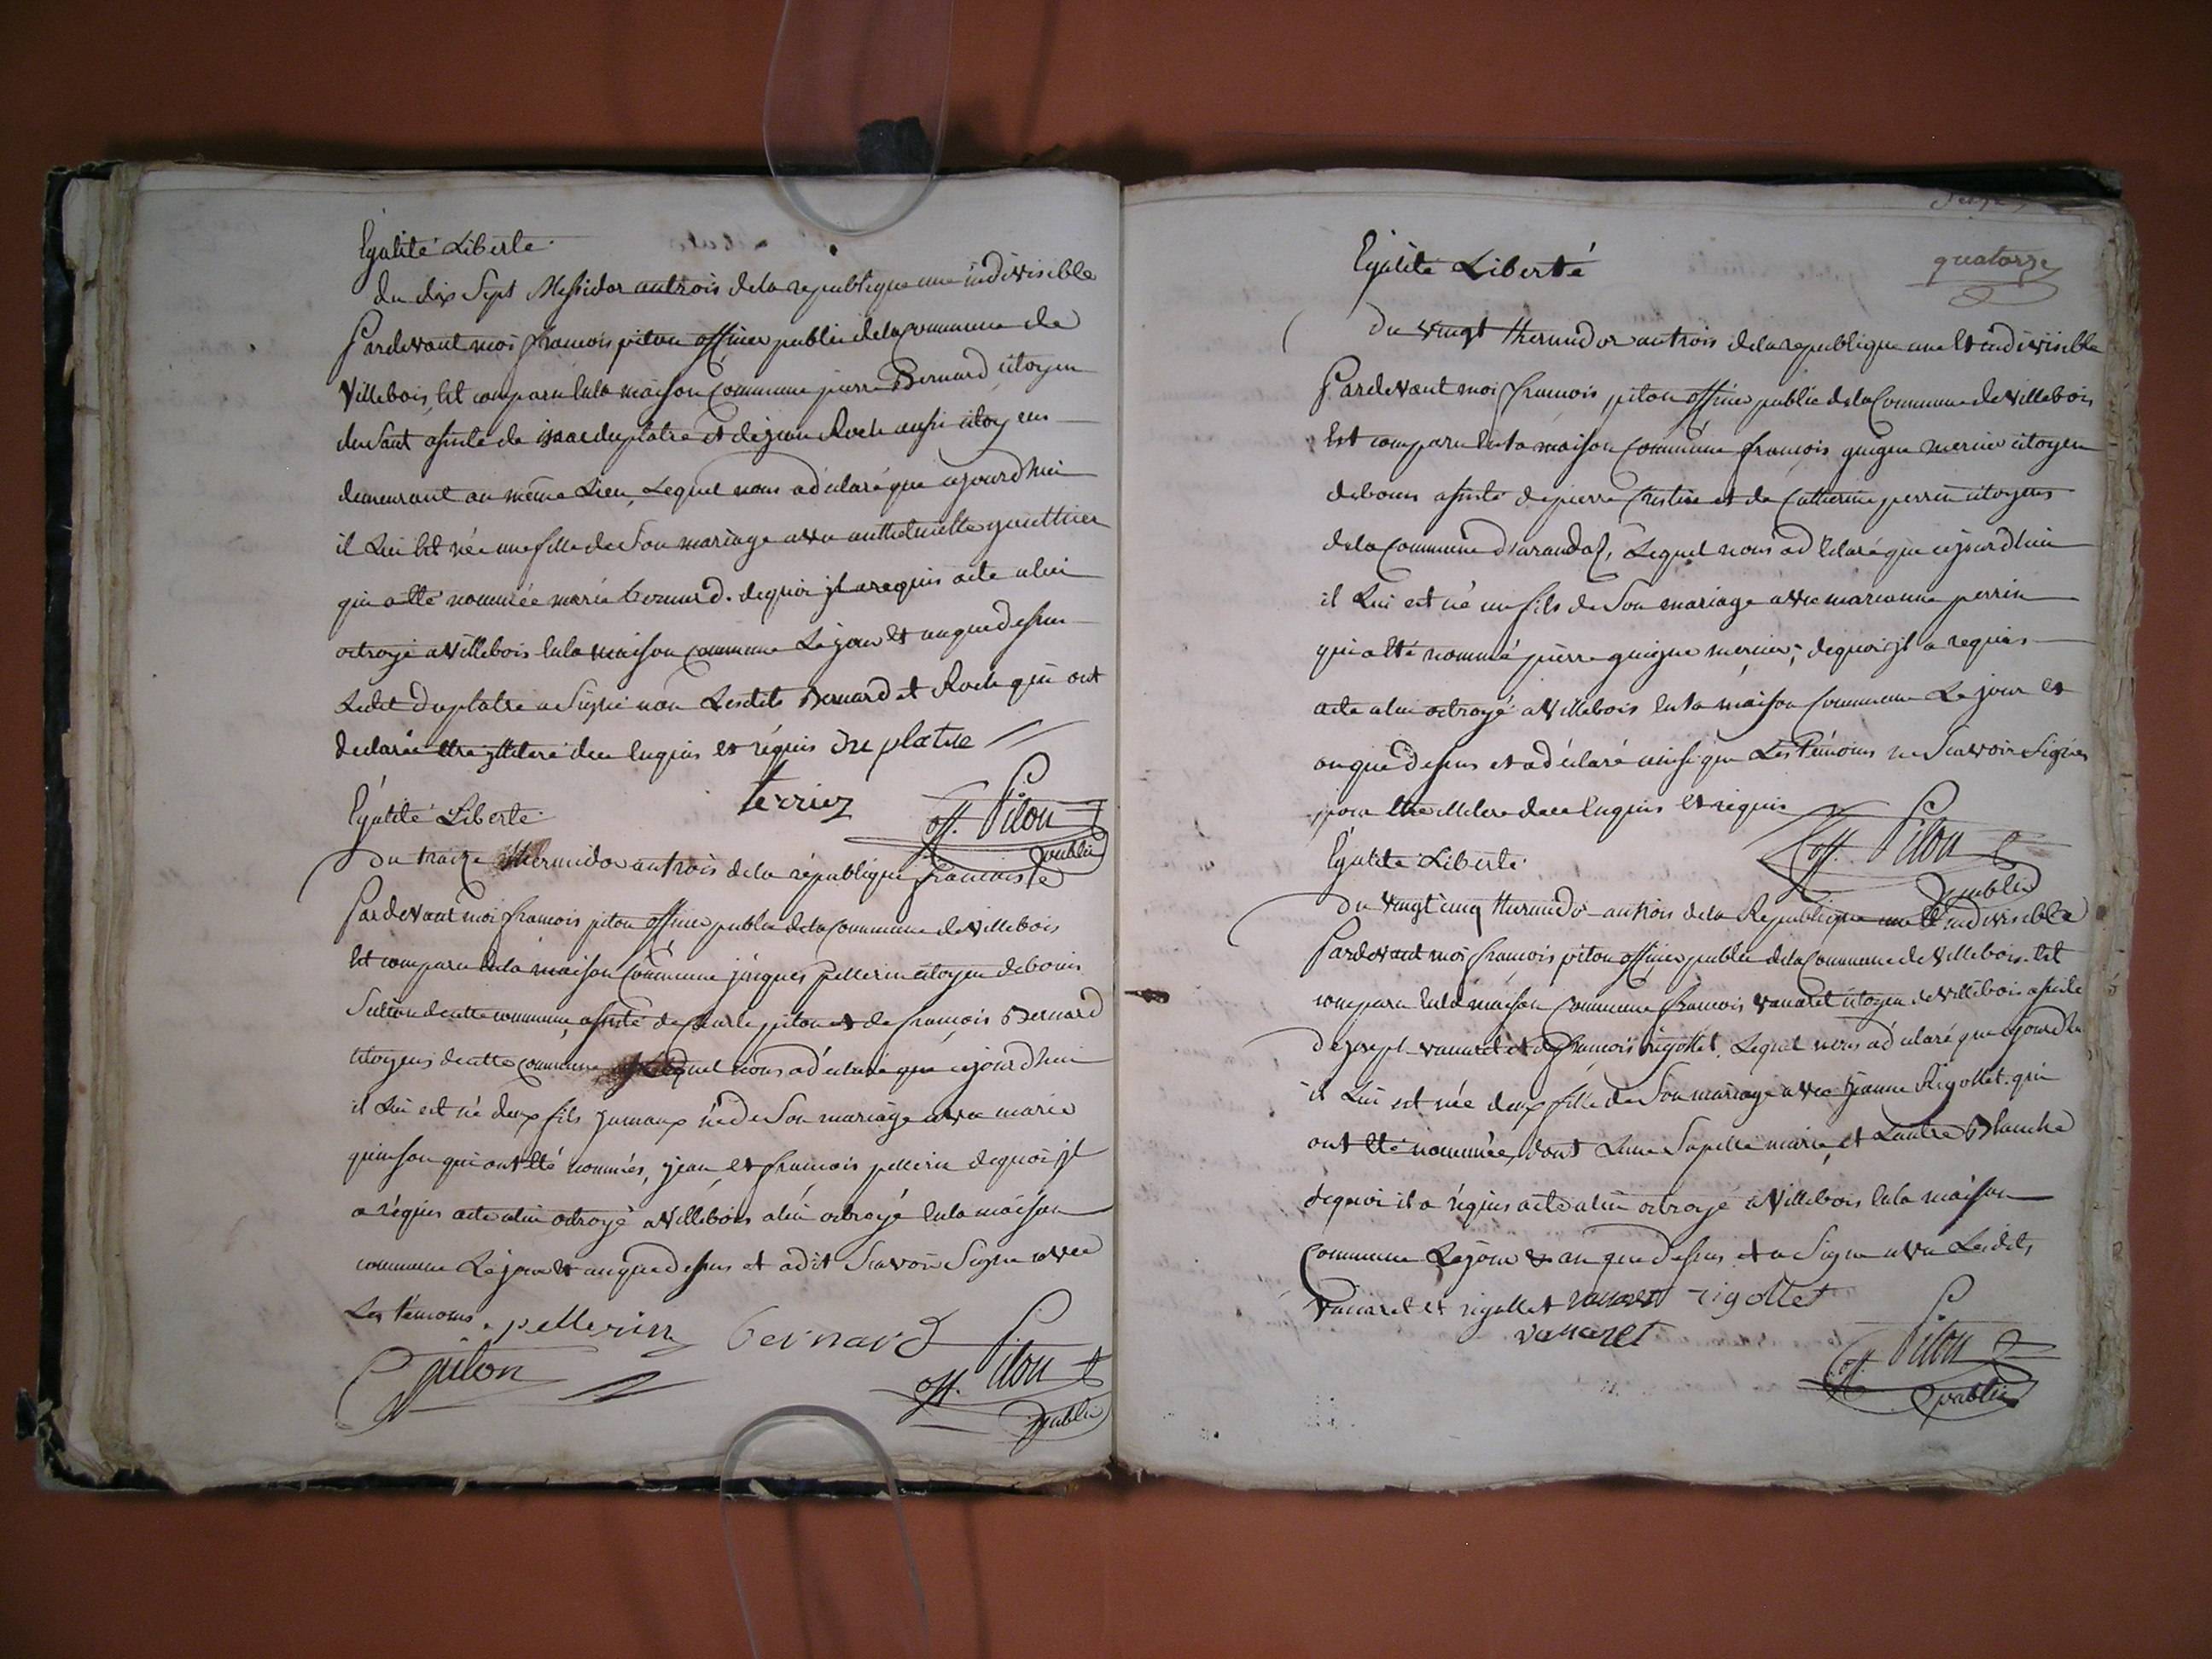 Egalité Liberté
du dix Sept Messidor antrois dela republique une indivisible
Pardevant moi francois piton officier public dela Commune de
Villebois, Est comparu Enla maison Commune pierre Bernard citoyen
assisté de isaac duplatre et dejean Roch aussi citoyens
demeurant au même Lieu, Lequel nous adéclaré que cejourd'huis
il Lui Est née une fille de Son mariage avec anthelmette gauttier
qui aEté nommée marie bernard. dequoi jl arequis acte alui
octroyé aVillebois Enla maison Commune Lejour Et anquedessus
Ledit duplatre aSigné non Lesdits Bernard et Roch qui ont
declarée Etre jlleteré dece Enquis et réquis Du platre
terrier
off. Piton
public
Égalité Liberté
Du traize thermidor antrois dela république francoise
Pardevant moi francois piton officier public dela Commune deVillebois
Est comparu Enla maison Commune jacques pellerin citoyen debouis
Section decette commune, assisté de Charle piton et de francois Bernard
citoyens decette commune Lequel nous adéclaré que cejourd'hui
il Lui est né deux fils jumaux né de Son mariage avec marie
quinson qui ont Eté nommés, jean et francois pellerin dequoi jl
a réquis acte alui octroyé aVillebois alui octroyé Enla maison
commune Lejour Et anquedessus et adit Scavoir Signe avec
Les témoins. pellerin bernard
C piton
off. Piton
public
quatorze
Egalité Liberté
Du vingt thermidor antrois dela republique une Et indivisible
Pardevant moi francois piton officier public dela Commune deVillebois
Est comparu Enla maison Commune françois guigue mercier citoyen
debouis assisté depierre Cristin et de Catherine perrin citoyens
dela Commune d'arandaz, Lequel nous adEclaré que cejourd'hui
il Lui est né un fils de Son mariage avec marianne perrin
qui aEté nommé pierre guigue mercier; dequoi jl a requis
acte alui octroyé aVillebois Enla maison Commune Lejour Et
anquedessus et adéclaré ainsi que Les Témoins ne Scavoir Signer
pour Etre illetere dece Enquis Et requis
off. Piton
public
Égalité Liberté
Du vingt cinq thermidor antrois dela République une Et indivisible
Pardevant moi francois piton officier public dela Commune deVillebois. Est
comparu Enla maison Commune francois vanaret citoyen deVillebois assisté
dejoseph vanaret et defrancois rigottet. Lequel nous adéclaré que cejourd'hu
il Lui est née deux fille de Son mariage avec jeanne Rigottet. qui
ont Eté nommée, dont Lune Sapelle marie, et Lautre Blanche
dequoi il a réquis acte alui octroyé aVillebois Enla maison
Commune Lejour & anquedessus et a Signe avec Lesdits
vanaret et rigottet vanaret rigottet
vanaret
off. Piton
public